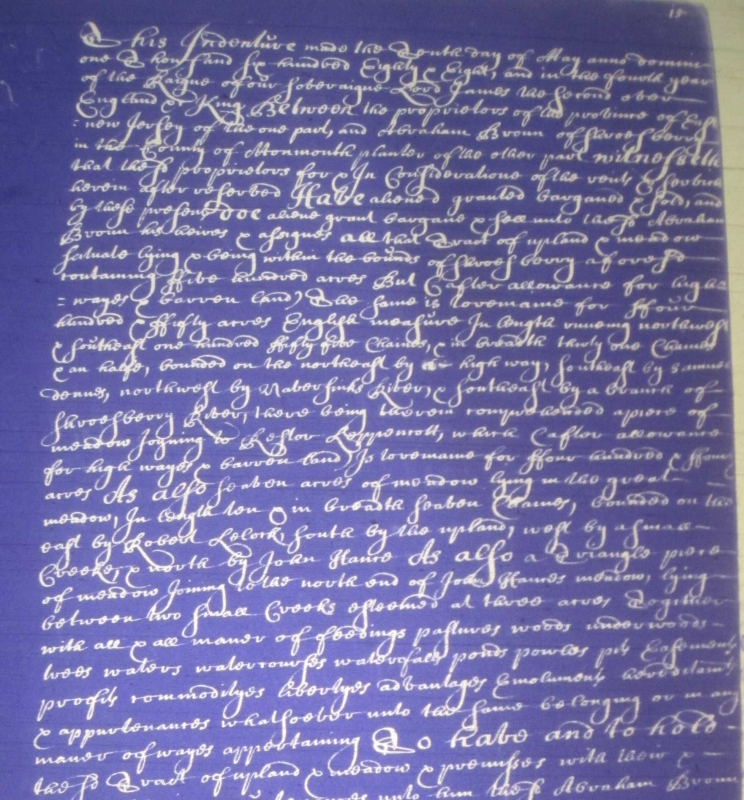 15
This Indenture made the Tenth day of May anno domini
one Thousand six hundred Eighty & Eight, and in the fourth year
of the Raigne of our Soveraigne Lord James the second over
England &c King Between the proprietors of the province of East
: new Jersey of the one part, and Abraham Broun of Shroesberry
in the County of Monmouth planter of the other part witnesseth
that the sd proprietors for & In Consideratione of the rent & services
herein after reserved Have aliened granted bargained & sold, and
by these presents doe aliene grant bargane & sell unto the sd Abraham
Broun his heires & assignes all that Tract of upland & meadow
situate lying & being within the bounds of Shroesberry aforesd
containing ffive hundred acres But (after allowance for high
= wayes & barren land) The same is toremaine for ffour
hundred & ffifty acres English measure In length runeing northwest
& southeast one hundred ffifty five Chaines, & in breadth thirty one Chaines
& an halfe, bounded on the northeast by a high way, southeast by Samuel
dennes, northwest by Navorsinks River, & southeast by a branch of
Shroesberry River, there being therein comprehended apiece of
meadow Joyning to Restor Leppencott, which (after allowance
for high wayes & barren land) Is toremaine for ffour hundred & ffifty
acres As also seaven acres of meadow lying in the great
meadow, In length ten & in breadth seaven Chaines, bounded on the
east by Robert Lelock, south by the upland, west by asmall
Creeke, & north by John Hance As also a Triangle piece
of meadow Joining to the north end of John Hances meadow, lying
between two small Creeks esteemed at three acres Together
with all & all maner of feedings pastures woods underwoods
trees waters watercourses waterfalls ponds pooles pits Easements
profits commodityes libertyes advantages Emoluments hereditaments
& appurtenances whatsoever unto the same belonging or in any
maner of wayes appertaining To have and to hold
the sd Tract of upland & meadow & premisses with their &
unto him the sd Abraham Broun